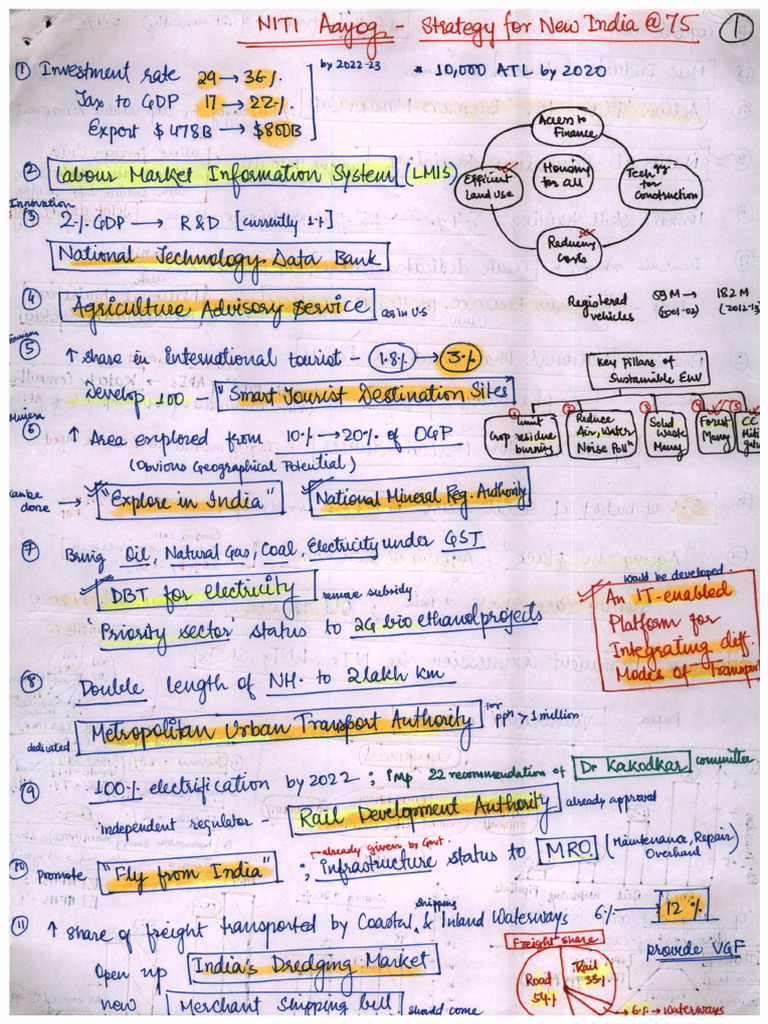 NITI Aayog - Strategy for New India @ 75
1
① Investment rate 29 → 36%
Tax to GDP 17 → 22%
Export $ 478B → $800B
by 2022-23
* 10,000 ATL by 2020
Access to Finance
Efficient Land use
Housing for all
Techgy for Construction
Reducing costs
② Labour Market Information System (LMIS)
Innovation
③ 2% GDP → R&D [currently 1%]
National Technology Data Bank
④ Agriculture Advisory Service as in U.S
Registered vehicles 59M → 182M
(2001-02) (2012-13)
Tourism
⑤ ↑ share in international tourist - 1.8% → 3%
Develop 100 - "Smart Tourist Destination Sites"
Key Pillars of Sustainable Env
① Limit Crop residue burning
② Reduce Air, Water Noise Pollⁿ
③ Solid Waste Manag
④ Forest Manag
⑤ CC Miti gation
Minerals
⑥ ↑ Area explored from 10% → 20% of OGP
(Obvious Geographical Potential)
can be done → "Explore in India" National Mineral Reg. Authority
⑦ Bring Oil, Natural Gas, Coal, Electricity under GST
DBT for electricity remove subsidy
'Priority sector' status to 2G bio ethanol projects
would be developed.
An IT-enabled
Platform for
Integrating diff.
Modes of Transport
⑧ Double length of NH. to 2 lakh km
dedicated Metropolitan Urban Transport Authority for ppⁿ > 1 million
⑨ 100% electrification by 2022 ; imp 22 recommendation of Dr Kakodkar committee
independent regulator - Rail Development Authority already approved
already given by Govt.
⑩ Promote "Fly from India" ; infrastructure status to MRO (Maintenance, Repair/ Overhaul)
shipping
⑪ ↑ share of freight transported by Coastal & Inland Waterways 6% → 12%
provide VGF
Open up India's Dredging Market
new Merchant Shipping bill should come
Freight share
Road 54%
Rail 33%
→ 6% → waterways